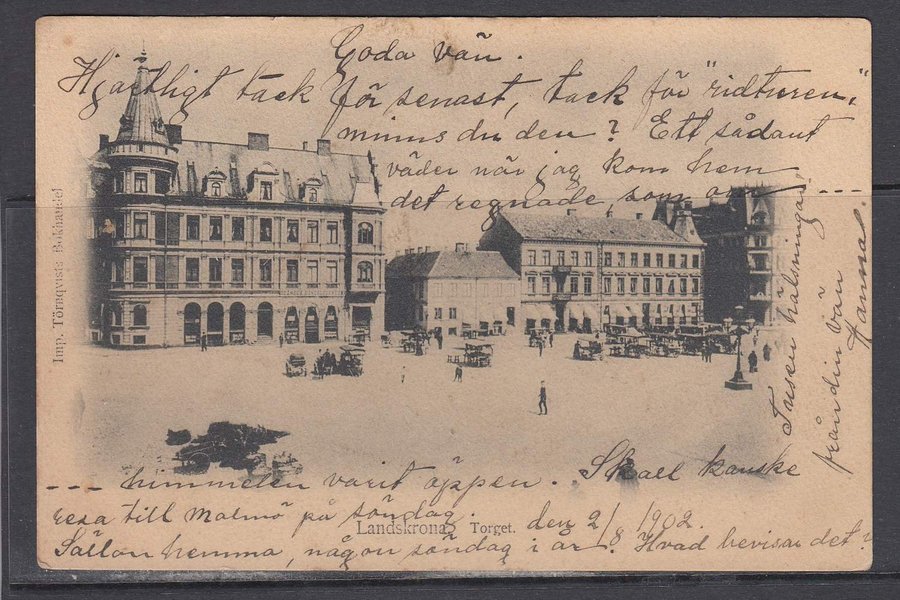 Goda vän.
Hjärtligt tack för senast, tack för "ridturen,"
minns du den? Ett sådant
väder när jag kom hem
det regnade, som om ---
--- himmelen varit öppen. Skall kanske
resa till Malmö på söndag. den 2/8 1902.
Sällan hemma, någon söndag i år. Hvad bevisar det?
Tusen hälsningar
från din vän
Hanna.
Landskrona. Torget.
Imp. Törnqvists Bokhandel